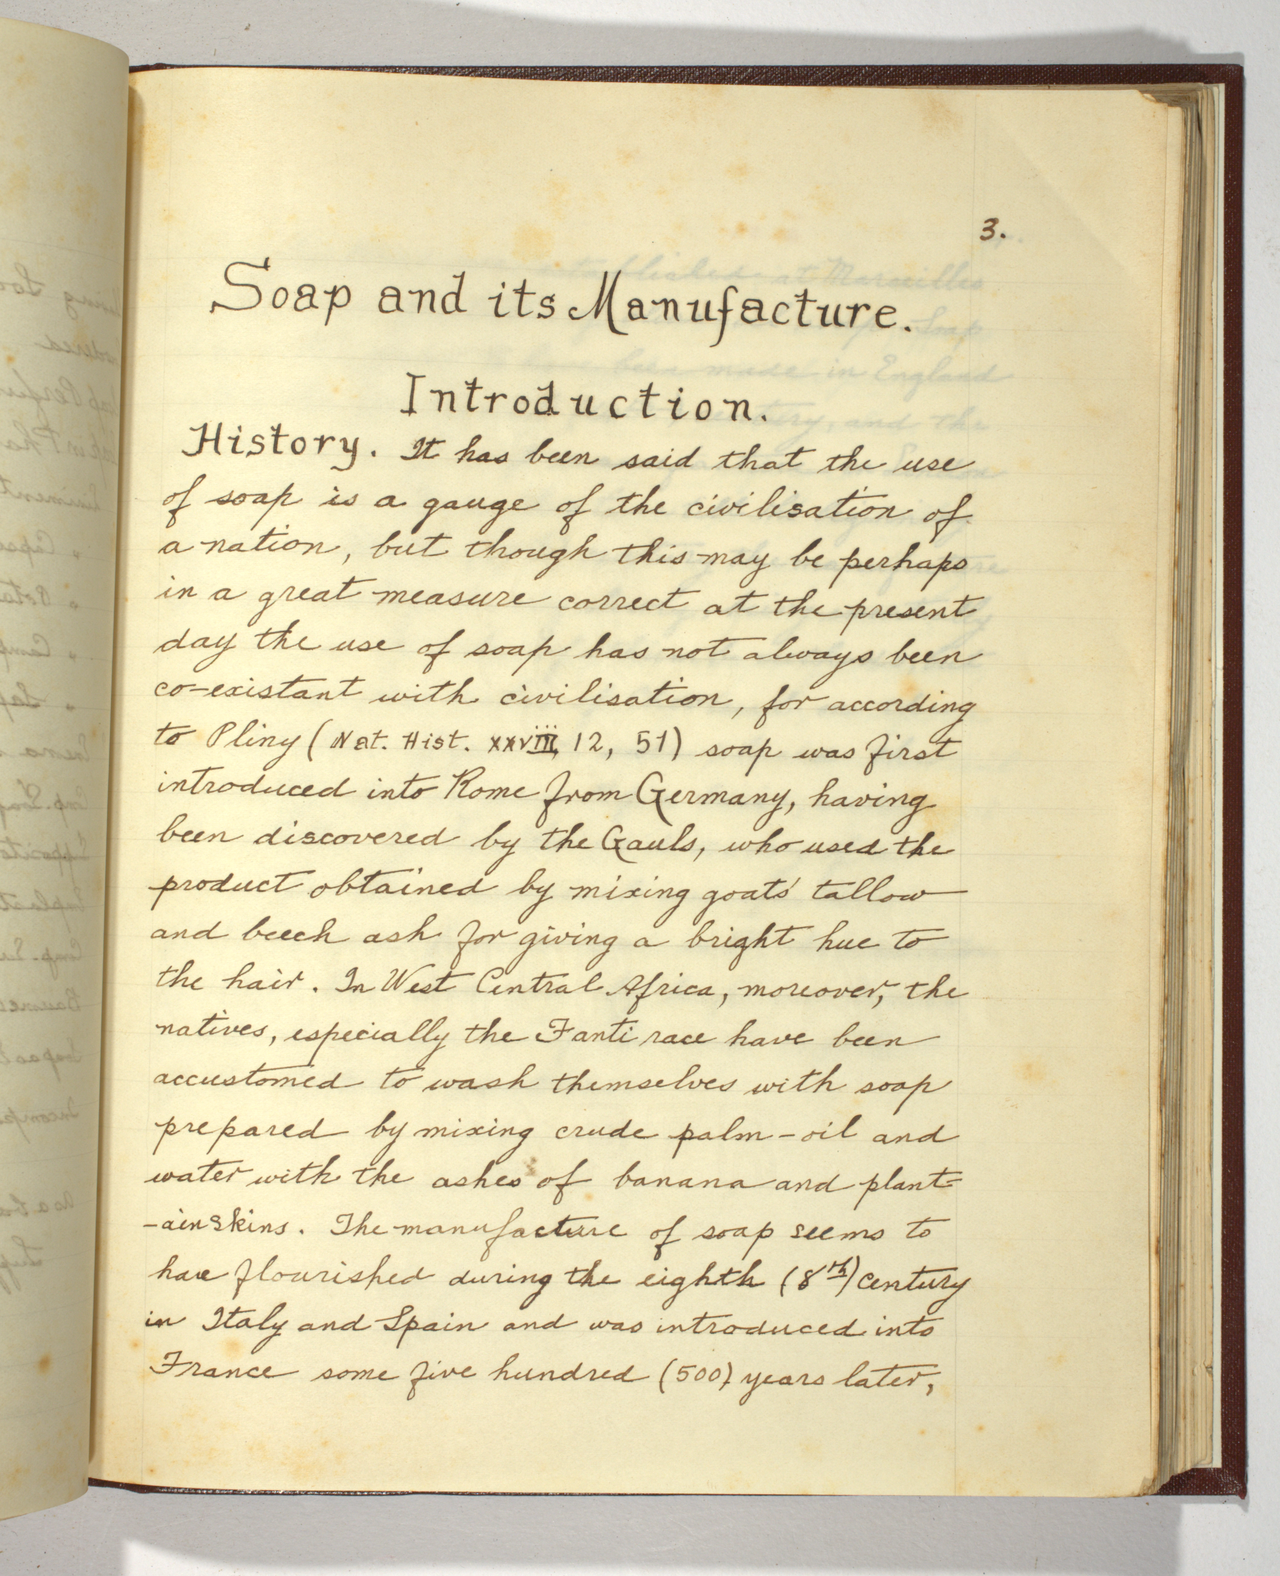 3.
Soap and its Manufacture.
Introduction.
History. It has been said that the use
of soap is a gauge of the civilisation of
a nation, but though this may be perhaps
in a great measure correct at the present
day the use of soap has not always been
co-existant with civilisation, for according
to Pliny (Nat. Hist. xxviii, 12, 51) soap was first
introduced into Rome from Germany, having
been discovered by the Gauls, who used the
product obtained by mixing goats' tallow
and beech ash for giving a bright hue to
the hair. In West Central Africa, moreover, the
natives, especially the Fanti race have been
accustomed to wash themselves with soap
prepared by mixing crude palm-oil and
water with the ashes of banana and plant=
-ain skins. The manufacture of soap seems to
have flourished during the eighth (8th) century
in Italy and Spain and was introduced into
France some five hundred (500) years later,